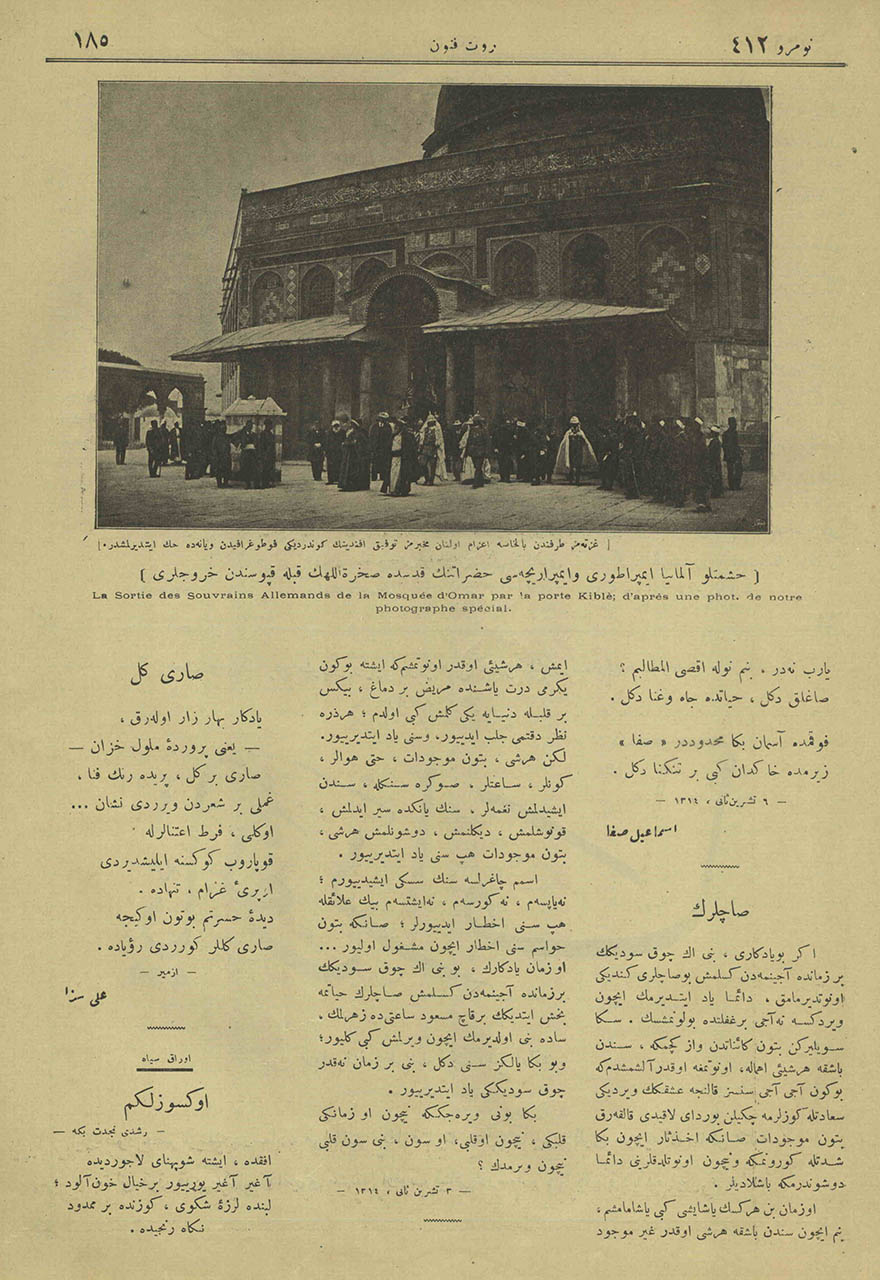 نومرو ٤١٢
ثروت فنون
١٨٥
[ غزته‌مز طرفندن بالخاصه اعزام اولنان مخبرمز توفيق افندينك كوندرديكی فوطوغرافيدن ويانه‌ده حك ايتديرلمشدر. ]
( حشمتلو آلمانيا ايمپراطوری وايمپراريچه‌سی حضراتنك قدسده صخرة‌اللهك قبله قپوسندن خروجلری )
La Sortie des Souvrains Allemands de la Mosquée d'Omar par la porte Kiblè; d'aprés une phot. de notre
photographe spécial.
يارب نه‌در ، بنم نوله اقصی المطالبم ؟
صاغلق دكل ، حياتده جاه وغنا دكل .
فوقمده آسمان بكا محدوددر « صفا »
زيرمده خاكدان كبی بر تنكنا دكل .
— ٦ تشرين ثانی ، ١٣١٤ —
اسماعيل صفا
صاچلرك
اكر بويادكاری ، بنی اك چوق سوديكك
بر زمانده آجينمه‌دن كسلمش بوصاچلری كنديكی
اونوتديرمامق ، دائما ياد ايتديرمك ايچون
ويردكسه نه‌آجی برغفلتده بولونمشسك . سكا
سويليركن بتون كائناتدن واز كچمكه ، سندن
باشقه هرشيئی اهماله، اونوتمغه اوقدر آلشمشدم‌كه
بوكون آجی آجی سنسز قالنجه عشقكك ويرديكی
سعادتله كوزلرمه چكيلن پورده‌ای لاقيدی قالقه‌رق
بتون موجودات صانكه اخذثار ايچون بكا
شدتله كورونمكه ونيچون اونوتلدقلرينی دائما
دوشوندرمكه باشلاديلر .
اوزمان بن هركسك ياشايشی كبی ياشامامشم،
بنم ايچون سندن باشقه هرشی اوقدر غير موجود
ايمش ، هرشيئی اوقدر اونوتمشم‌كه ايشته بوكون
يكرمی درت ياشنده مريض بر دماغ ، بيكس
بر قلبله دنيايه يكی كلمش كبی اولدم ؛ هرذره
نظر دقتمی جلب ايدييور، وسنی ياد ايتديرييور.
لكن هرشی ، بتون موجودات ، حتی هوالر ،
كونلر ، ساعتلر . صوكره سنكله ، سندن
ايشيدلمش نغمه‌لر . سنك يانكده سير ايدلمش ،
قونوشلمش ، ديكلنمش ، دوشونلمش هرشی ،
بتون موجودات هپ سنی ياد ايتديرييور .
اسمم چاغرلسه سنك سسكی ايشيدييورم ؛
نه‌ياپسه‌م ، نه كورسه‌م ، نه‌ايشتسه‌م بيك علائقله
هپ سنی اخطار ايدييورلر ؛ صانكه بتون
حواسم سنی اخطار ايچون مشغول اولیور ...
او زمان يادكارك ، بو بنی اك چوق سوديكك
برزمانده آجينمه‌دن كسلمش صاچلرك حياتمه
بخش ايتديكك برقاچ مسعود ساعتی‌ده زهرلمك،
ساده بنی اولديرمك ايچون ويرلمش كبی كليور؛
وبو بكا يالكز سنی دكل ، بنی بر زمان نه‌قدر
چوق سوديككی ياد ايتديرييور .
بكا بونی ويره‌جككه نيچون او زمانكی
قلبكی ، نيچون اوقلبی، او سون ، بنی سون قلبی
نيچون ويرمدك ؟
— ٣ تشرين ثانی ، ١٣١٤ —
صاری كل
يادكار بهار زار اوله‌رق ،
— يعنی پروردهٔ ملول خزان —
صاری بر كل ، پريده رنك فنا ،
غملی بر شعردن ويرردی نشان ...
اوكلی ، فرط اعتنالرله
قوپاروب كوكسنه ايليشديردی
او پریٔ غرام ، تنهاده .
ديدهٔ حسرتم بوتون اوكيجه
صاری كللر كورردی رؤياده .
— ازمير —
علی سزا
اوراق سياه
اوكسوزلكم
— رشدی نجدت بكه —
افقده ، ايشته شوپهنای لاجورديده
آغير آغير يورييور برخيال خون‌آلود ؛
لبنده لرزهٔ شكوی ، كوزنده بر ممدود
نكاه رنجيده .